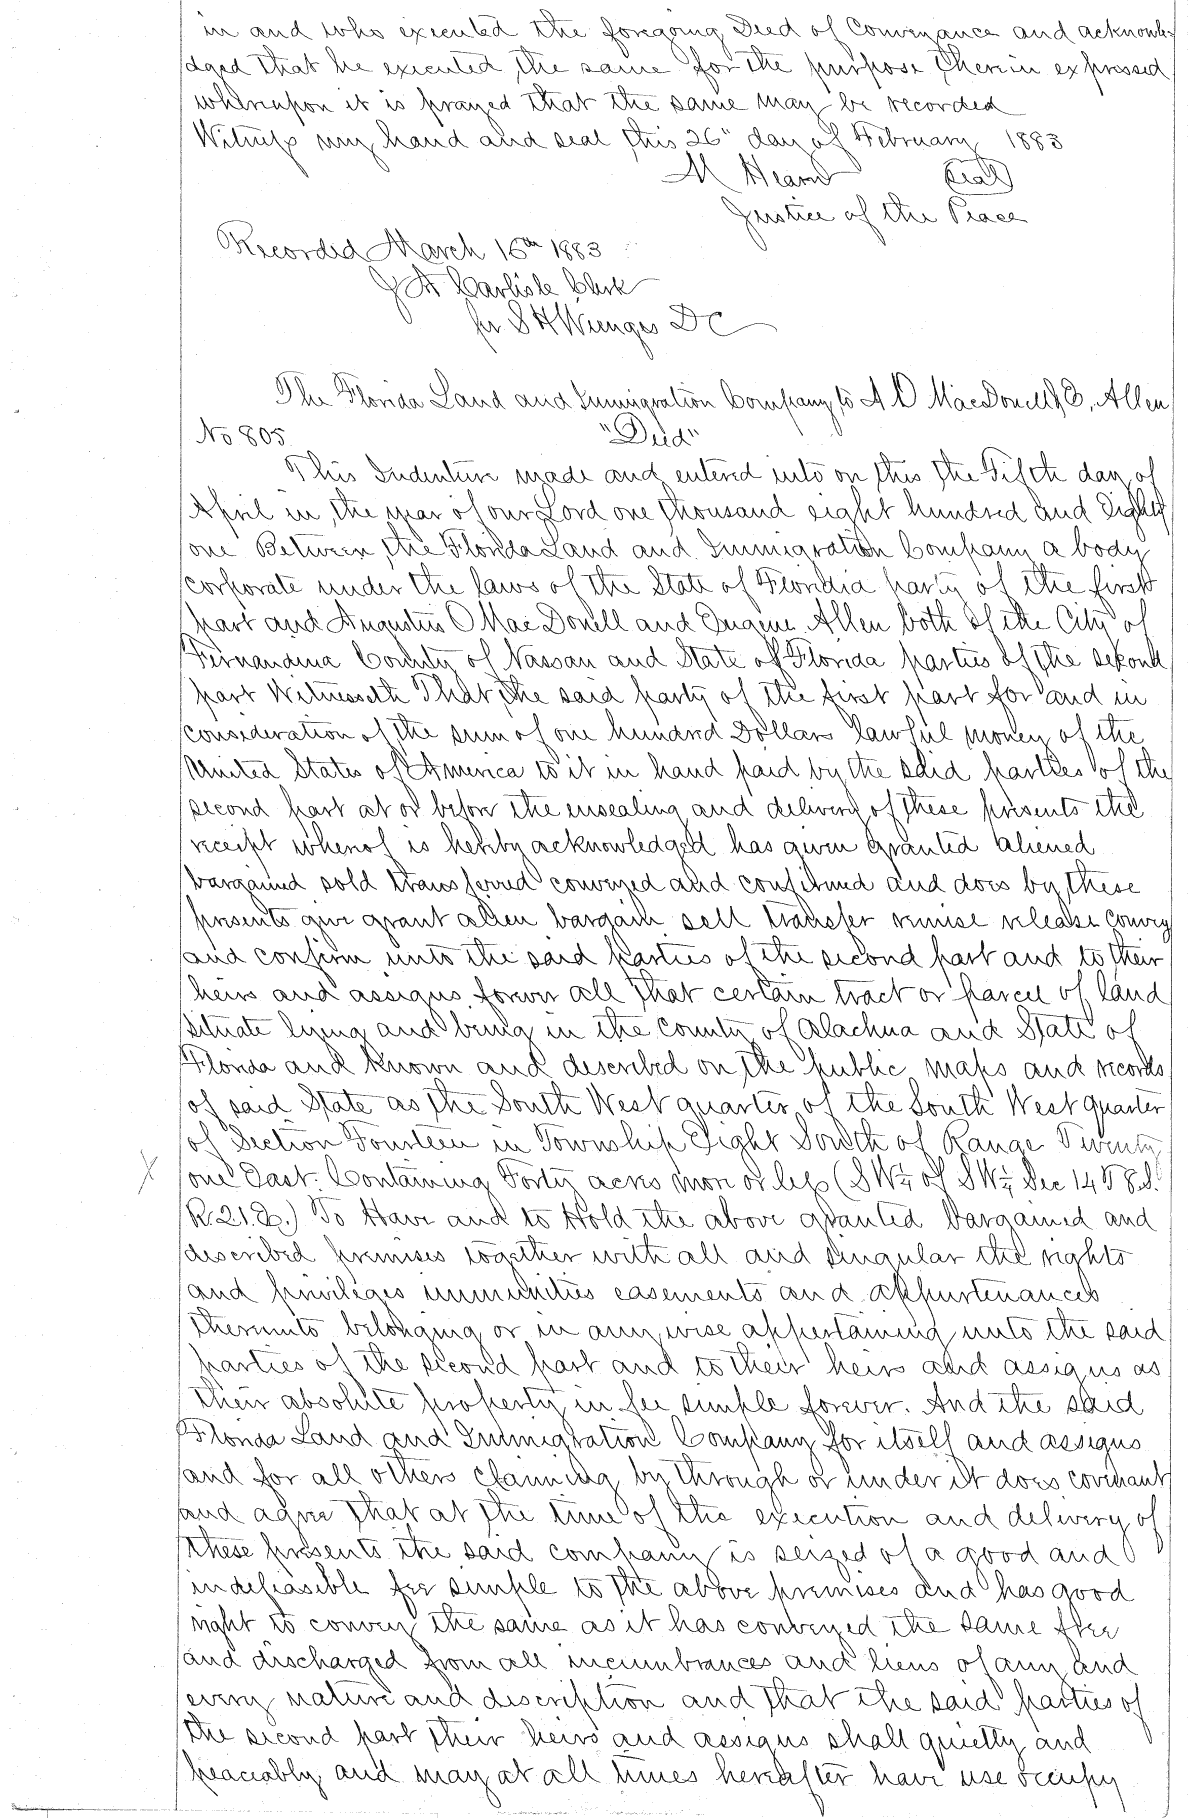 in and who executed the foregoing Deed of Conveyance and acknowle-
dged that he executed the same for the purpose therein expressed
whereupon it is prayed that the same may be recorded
Witness my hand and seal this 26" day of February 1883
M Hearn (seal)
Justice of the Peace
Recorded March 15th 1883
J A Carlisle Clerk
per S H Wienges DC
The Florida Land and Immigration Company to A O MacDonell & E. Allen
No 805 "Deed"
This Indenture made and entered into on this the Fifth day of
April in the year of our Lord one thousand eight hundred and Eighty
one Between the Florida Land and Immigration Company a body
corporate under the laws of the State of Floridia party of the first
part and Augustus O MacDonell and Eugene Allen both of the City of
Fernandina County of Nassau and State of Florida parties of the second
part Witnesseth That the said party of the first part for and in
consideration of the sum of one hundred Dollars lawful money of the
United States of America to it in hand paid by the said parties of the
second part at or before the ensealing and delivery of these presents the
receipt whereof is hereby acknowledged has given granted aliened
bargained sold transferred conveyed and confirmed and does by these
presents give grant alien bargain sell transfer remise release convey
and confirm unto the said parties of the second part and to their
heirs and assigns forever all that certain tract or parcel of land
situate lying and being in the county of Alachua and State of
Florida and known and described on the public maps and records
of said State as the South West quarter of the South West quarter
of Section Fourteen in Township Eight South of Range Twenty
X one East. Containing Forty acres more or less (SW¼ of SW¼ Sec 14 T 8 S.
R. 21. E.) To Have and to Hold the above granted bargained and
described premises together with all and singular the rights
and privileges immunities easements and appurtenances
thereunto belonging or in any wise appertaining unto the said
parties of the second part and to their heirs and assigns as
their absolute property in fee simple forever. And the said
Florida Land and Immigration Company for itself and assigns
and for all others claiming by through or under it does covenant
and agree that at the time of the execution and delivery of
these presents the said company is seized of a good and
indefeasible fee simple to the above premises and has good
right to convey the same as it has conveyed the same free
and discharged from all incumbrances and liens of any and
every nature and description and that the said parties of
the second part their heirs and assigns shall quietly and
peaceably and may at all times hereafter have use occupy